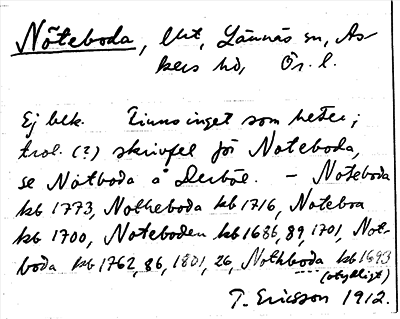 Nöteboda, Utt, Lännäs sn, As-
kers hd, Ör. l.
Ej bek. Finns inget som heter;
trol. (?) skrivfel för Noteboda,
se Nötboda å Derbol. – Noteboda
kb 1773, Notheboda kb 1716, Noteboa
kb 1700, Noteboden kb 1686, 89, 1701, Not-
boda kb 1762, 86, 1801, 26, Nothboda kb 1693
(otydligt)
T. Ericsson 1912.